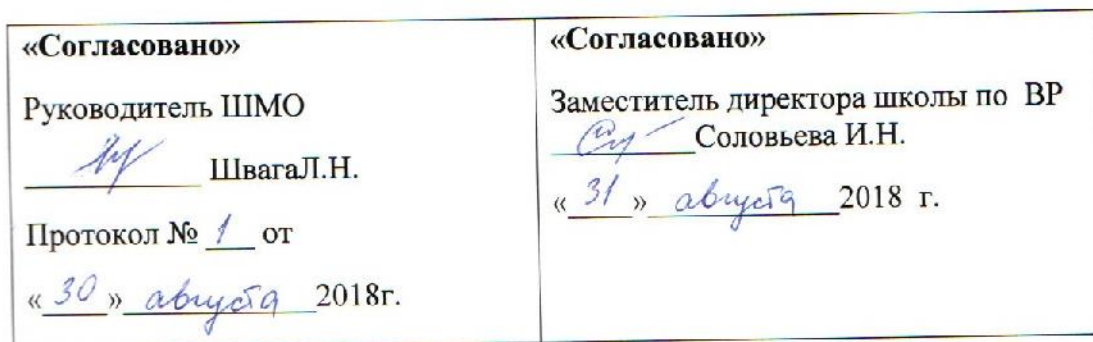 «Согласовано»
Руководитель ШМО
ШвагаЛ.Н.
Протокол № 1 от
«30» августа 2018г.
«Согласовано»
Заместитель директора школы по ВР
Соловьева И.Н.
«31» августа 2018 г.